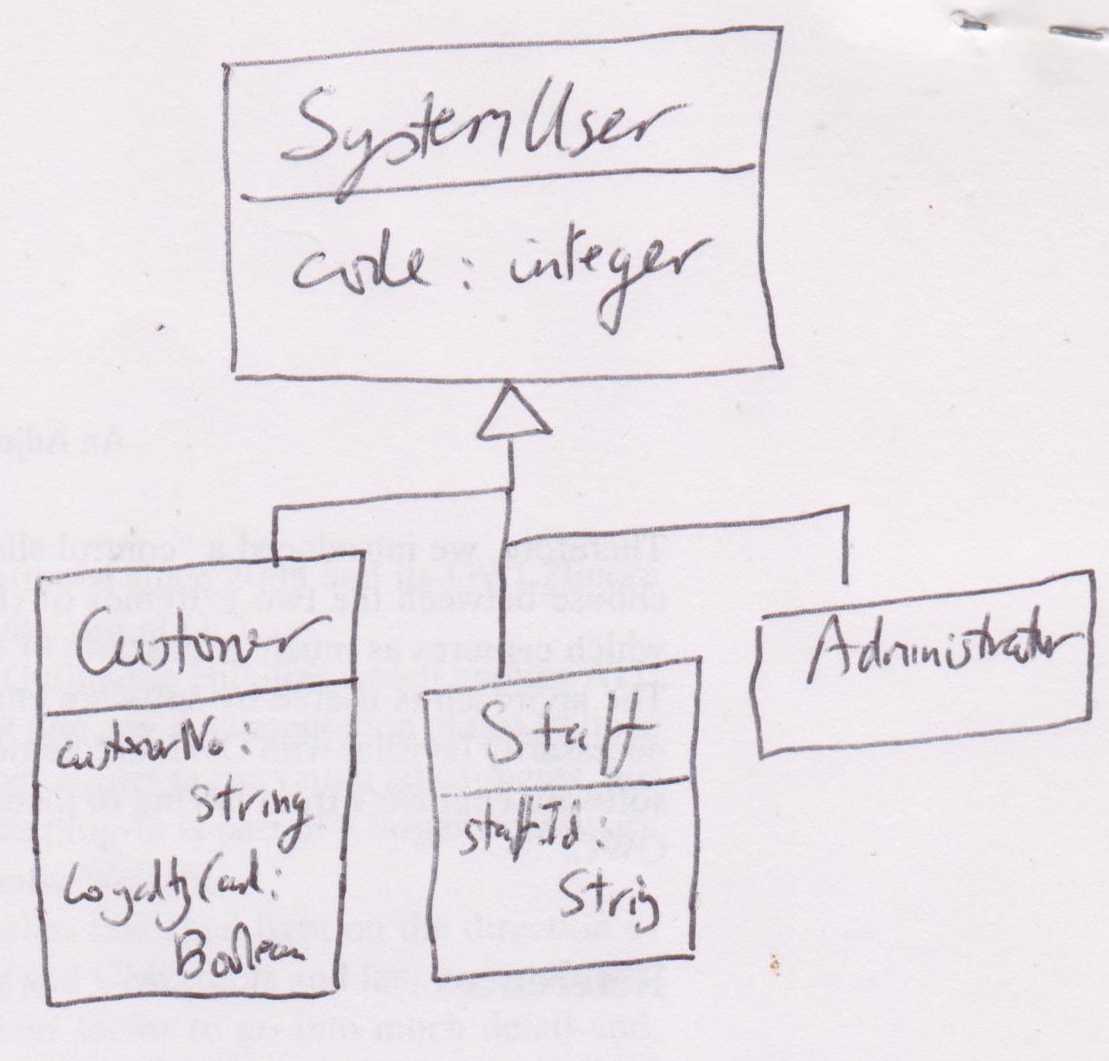 SystemUser
code: integer
Customer
customerNo:
String
LoyaltyCard:
Boolean
Staff
staffId:
String
Administrator